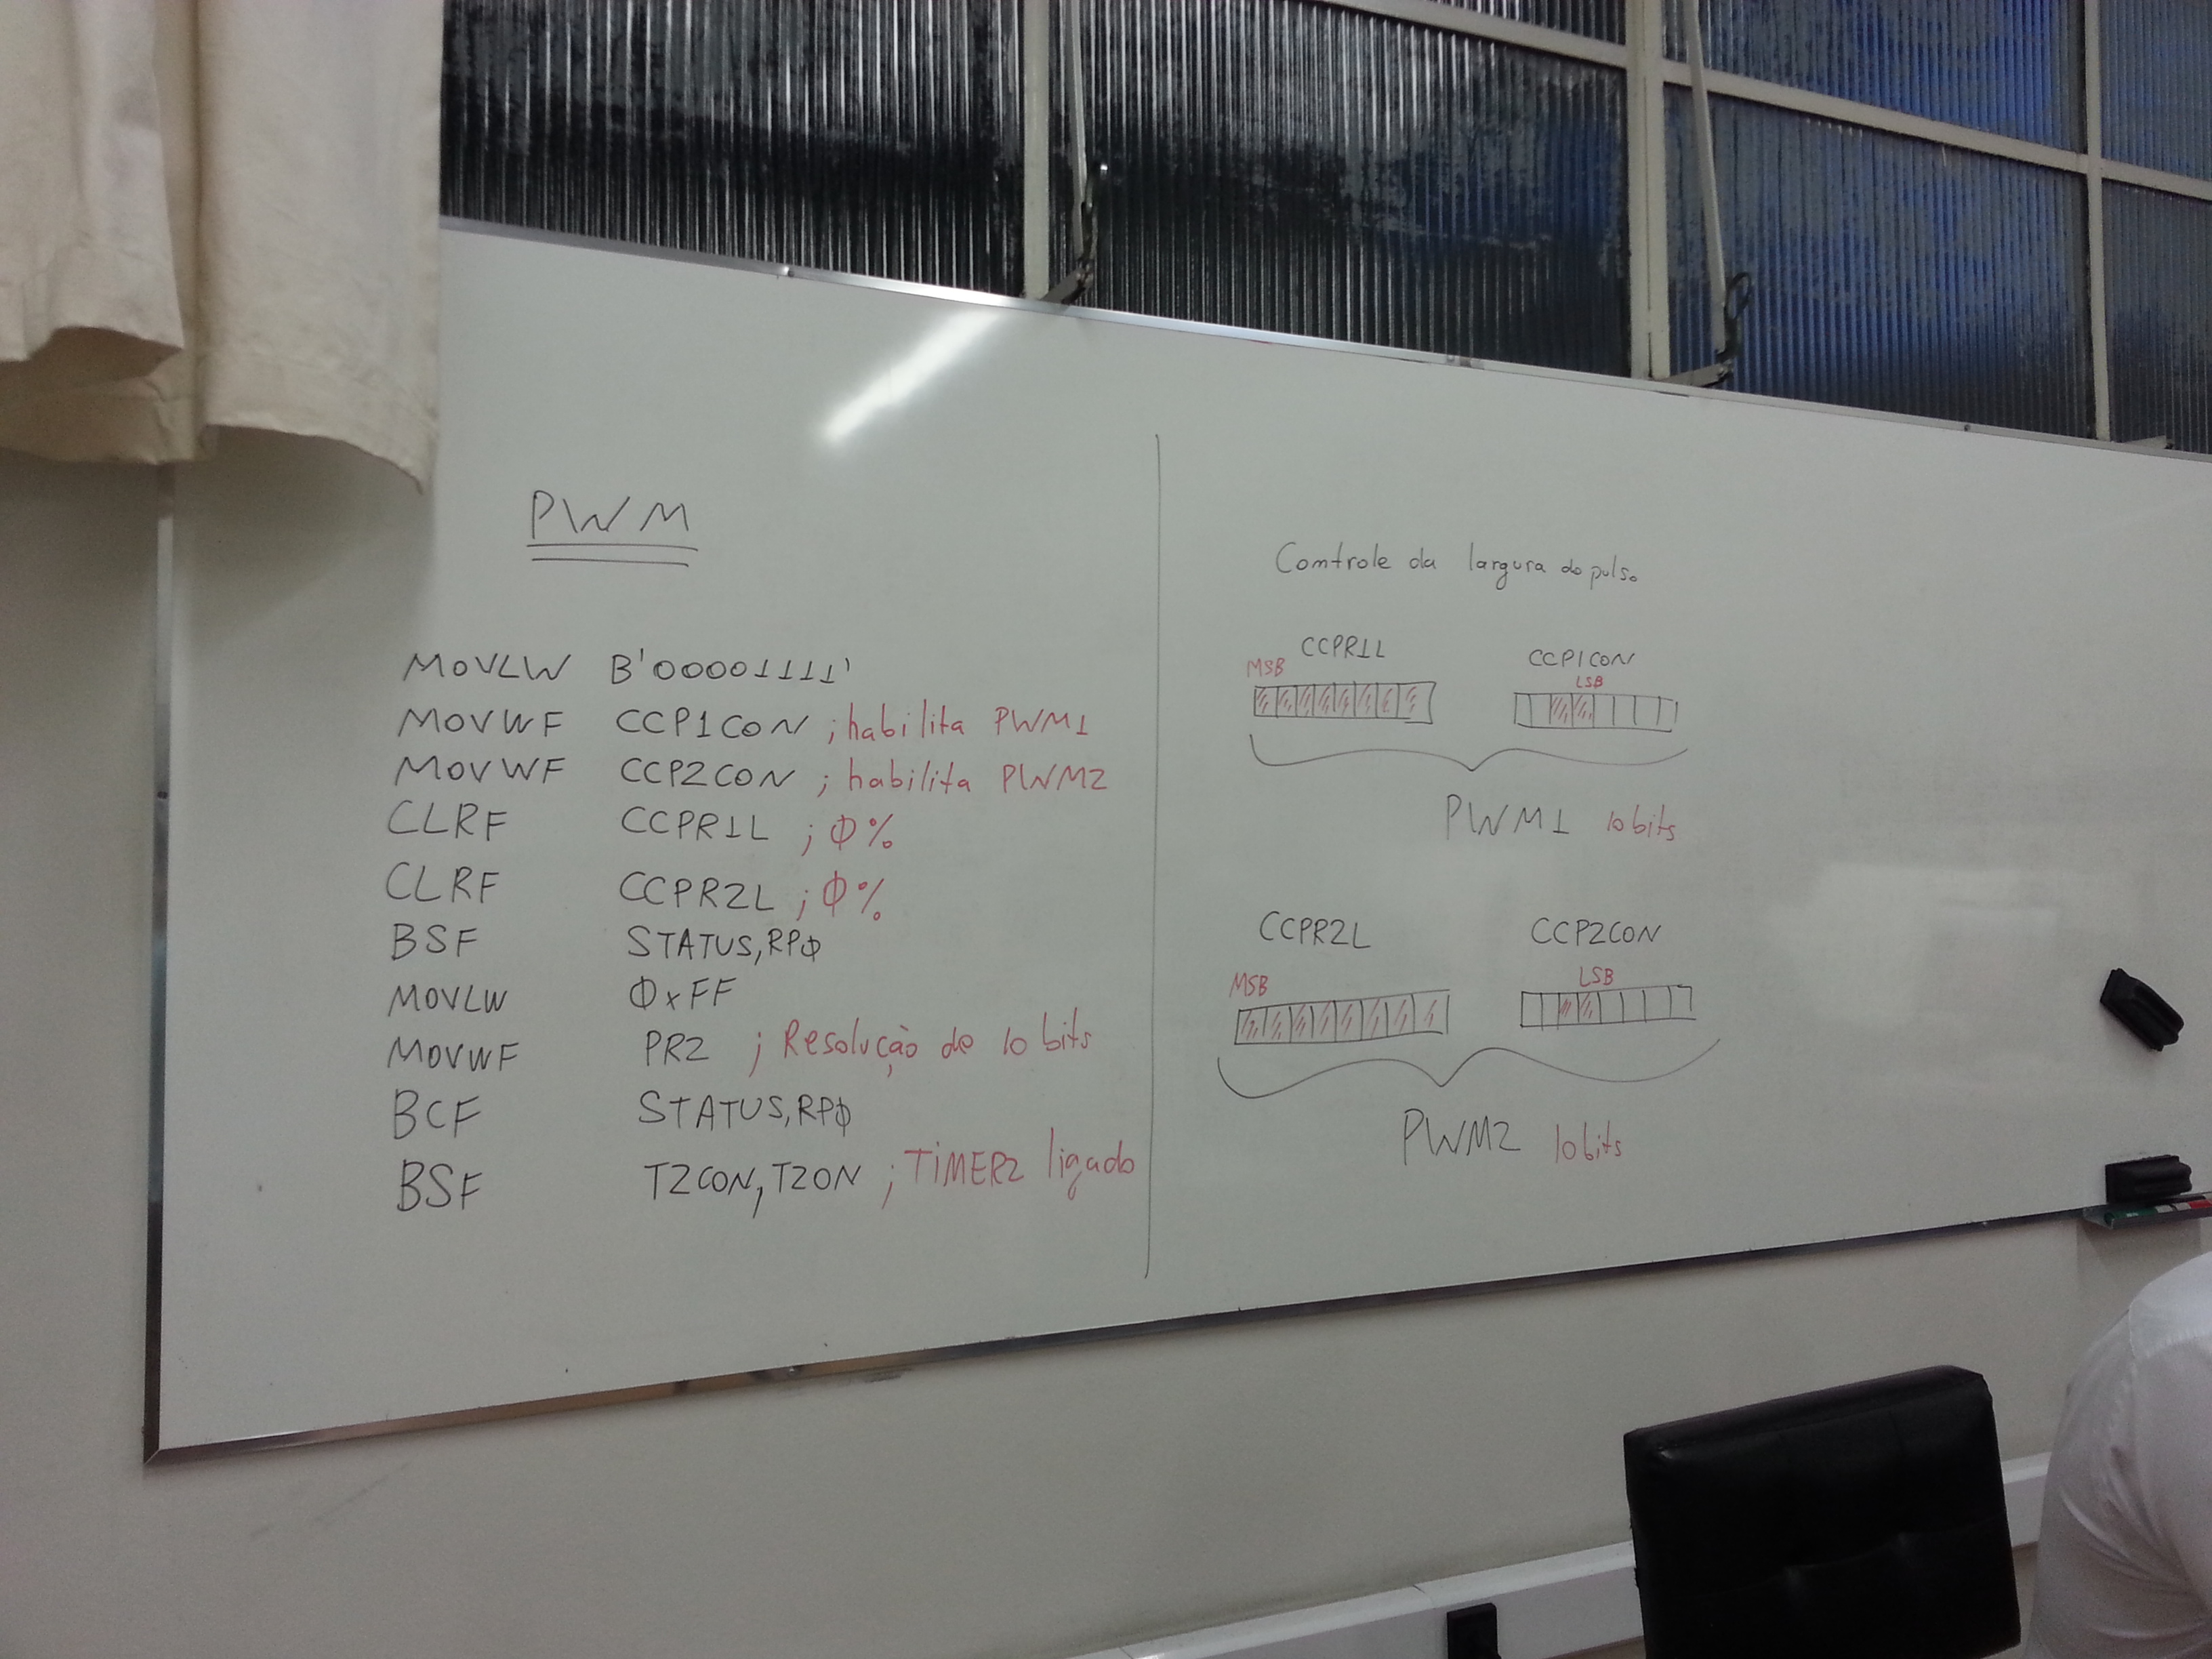 PWM
MOVLW B'00001111'
MOVWF CCP1CON ;habilita PWM1
MOVWF CCP2CON ; habilita PWM2
CLRF CCPR1L ; 0%
CLRF CCPR2L ; 0%
BSF STATUS,RP0
MOVLW 0xFF
MOVWF PR2 ; Resolução de 10 bits
BCF STATUS,RP0
BSF T2CON,T2ON ; TiMER2 ligado
Comtrole da largura do pulso
CCPR1L CCP1CON
MSB LSB
PWM1 10 bits
CCPR2L CCP2CON
MSB LSB
PWM2 10 bits